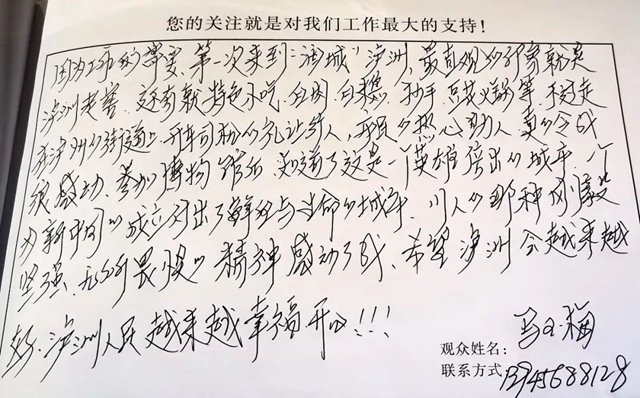 您的关注就是对我们工作最大的支持！
因为工作的需要，第一次来到“酒城”泸州，最直观的印象就是
泸州老窖，还有就特色小吃，白肉，白糕，猪手，豆花火锅等，走走
在泸州的街道上，开车司机的礼让行人，市民的热心助人，真的令我
很感动，参加博物馆后，知道了这是一个英雄倍出的城市，一个
为新中国的成立付出了鲜血与生命的城市，川人的那种刚毅
坚强，无所畏惧的精神感动了我，希望泸州会越来越
好，泸州人民越来越幸福开心!!!
观众姓名：马 梅
联系方式：13945688128